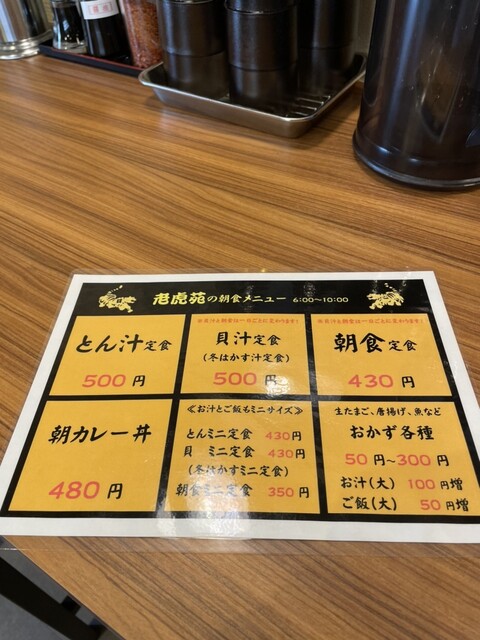 老虎苑の朝食メニュー 6:00〜10:00
とん汁定食
500円
※貝汁&朝食は一日ごとに変わります!
貝汁定食
(冬はかす汁定食)
500円
※貝汁&朝食は一日ごとに変わります!
朝食定食
430円
朝カレー丼
480円
≪お汁とご飯もミニサイズ≫
とんミニ定食 430円
貝 ミニ定食 430円
(冬はかすミニ定食)
朝食ミニ定食 350円
生たまご、唐揚げ、魚など
おかず各種
50円〜300円
お汁(大) 100円増
ご飯(大) 50円増